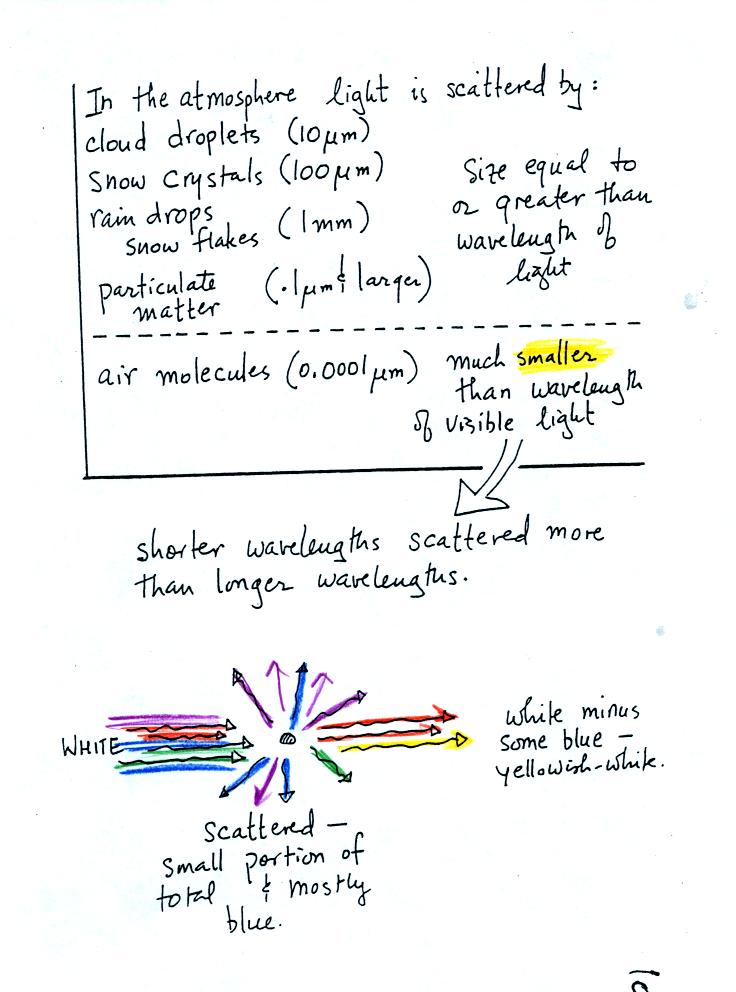 In the atmosphere light is scattered by:
cloud droplets (10 μm)
snow crystals (100 μm)
rain drops
snow flakes (1 mm)
particulate
matter (.1 μm & larger)
size equal to
or greater than
wavelength of
light
air molecules (0.0001 μm)
much smaller
than wavelength
of visible light
shorter wavelengths scattered more
than longer wavelengths.
WHITE
white minus
some blue –
yellowish-white.
scattered –
small portion of
total & mostly
blue.